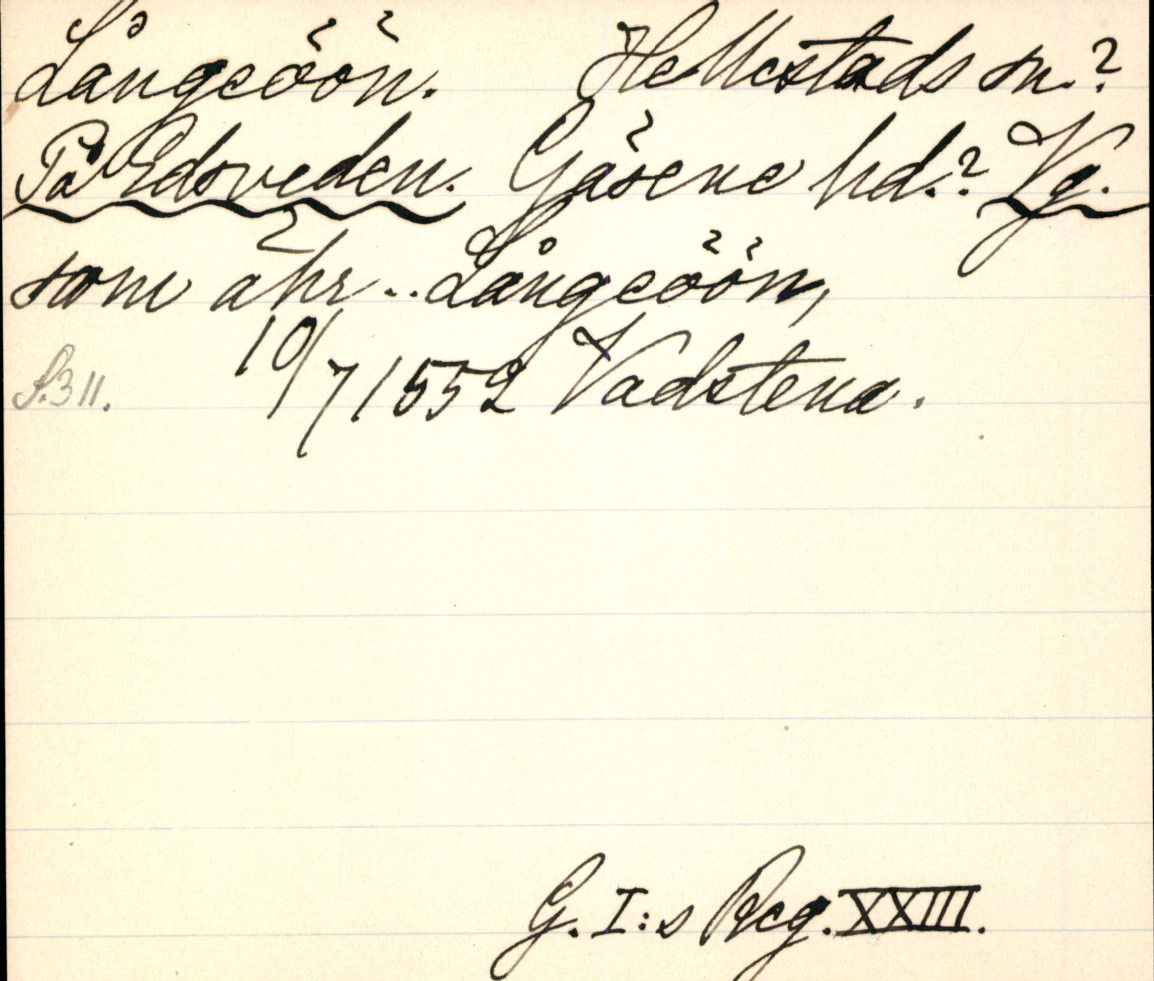 Långeöön. Hellestads sn.?
På Edsveden. Gäsene hd.? Vg.
som ähr .. Långeöön,
S.311. 10/7 1552 Vadstena.
G. I:s Reg. XXIII.